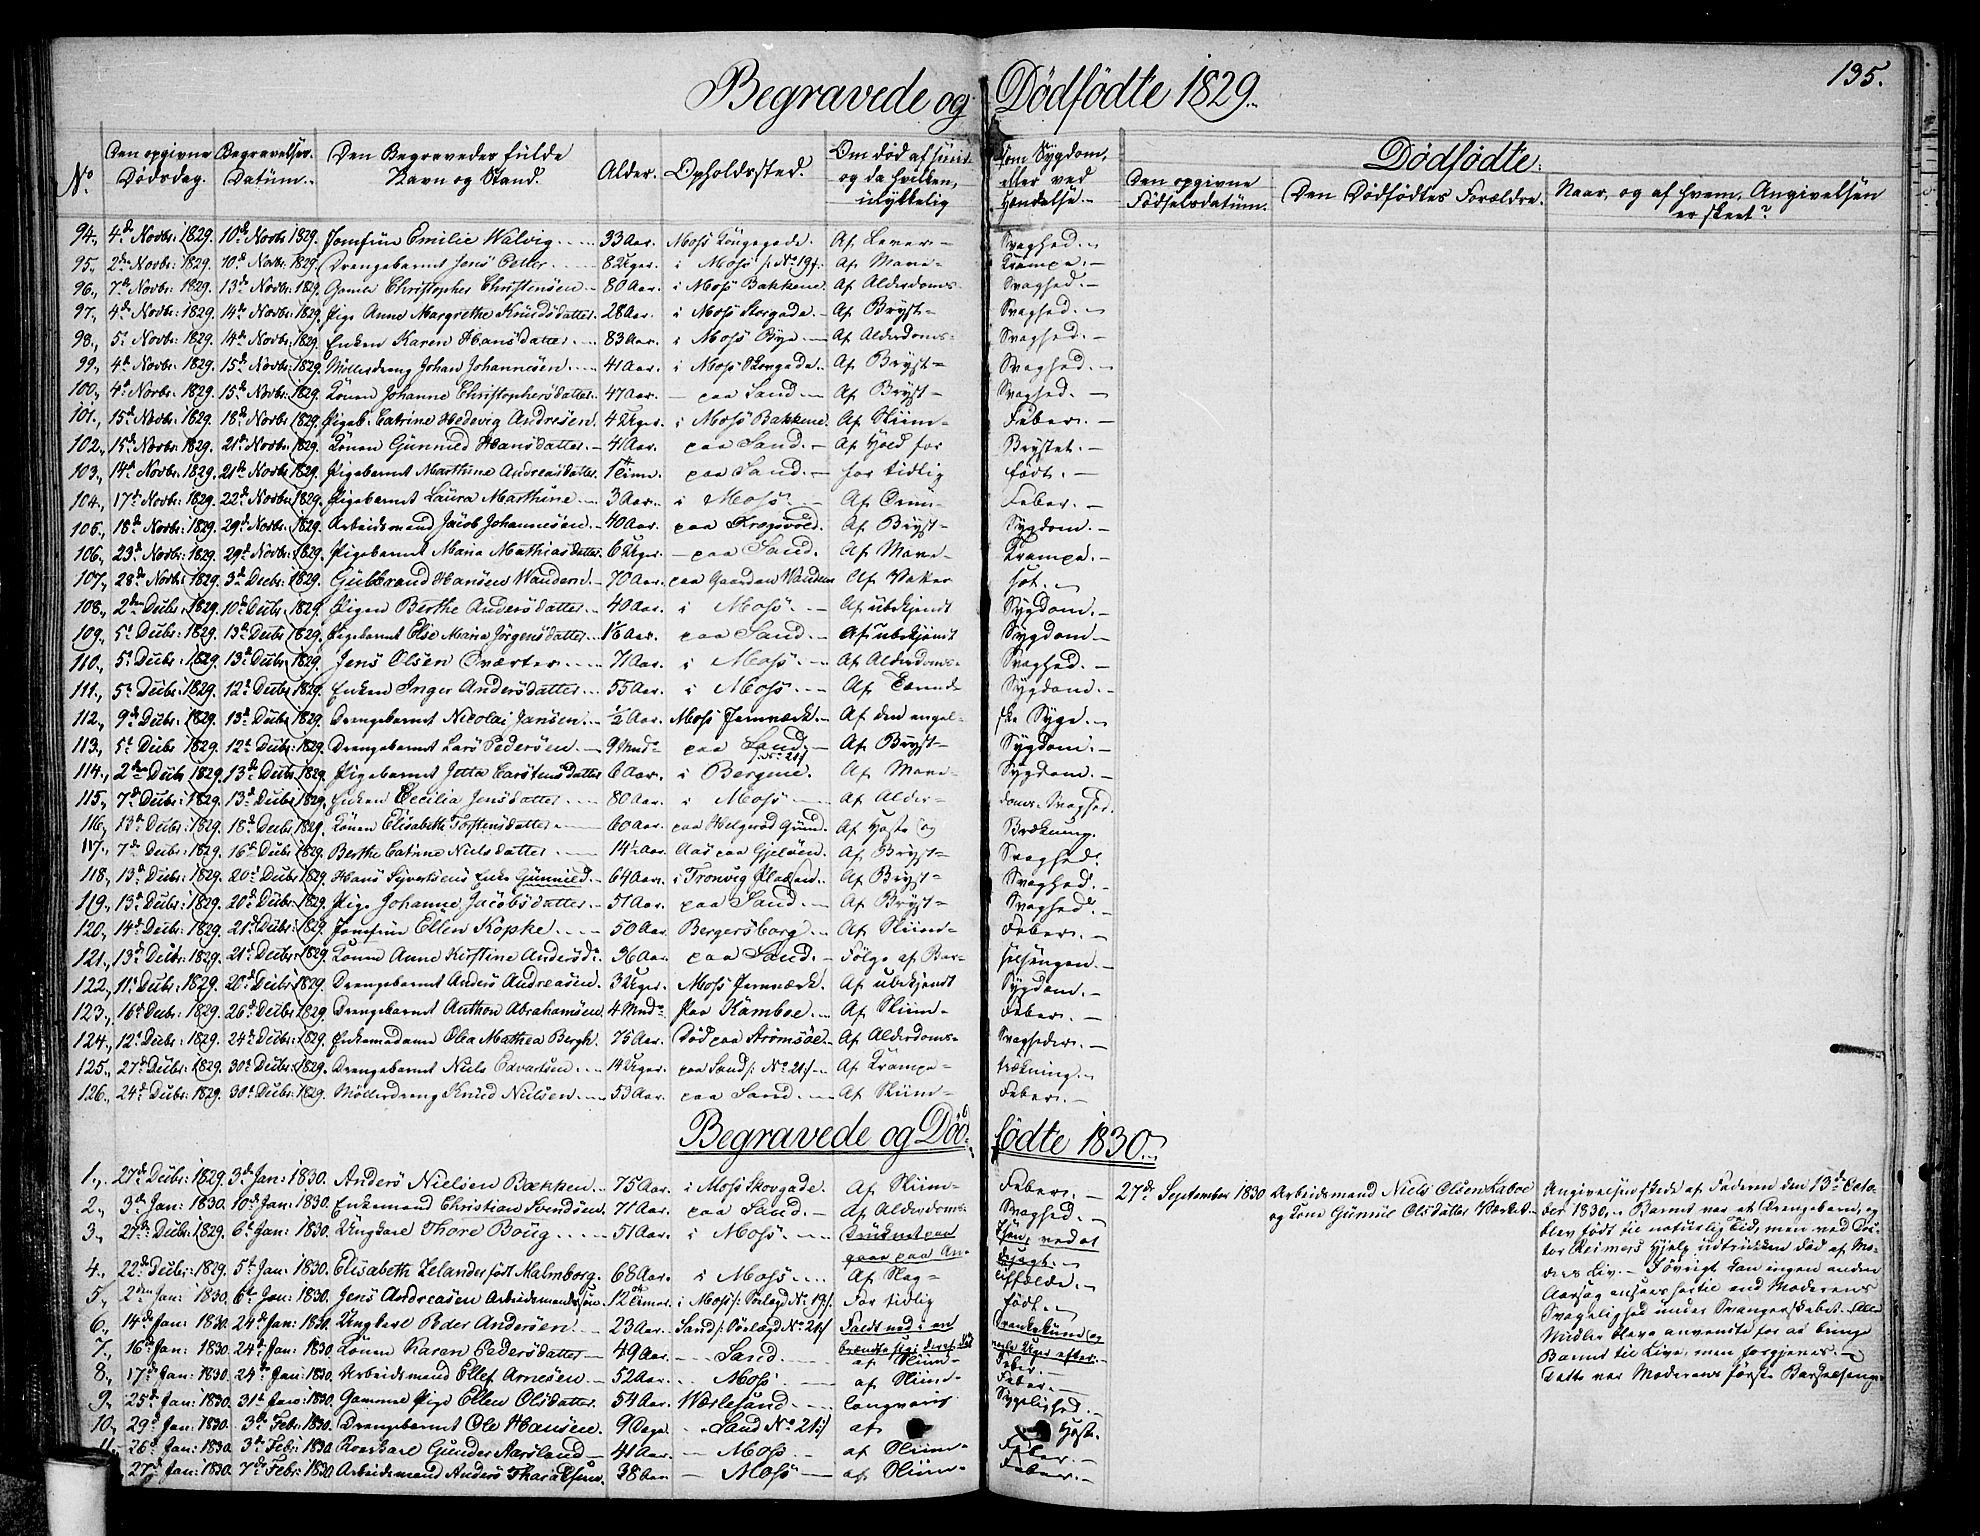 Begravede og Dødfødte 1829.
135.
No.
Den opgivne Dødsdag.
Begravelses-Datum.
Den Begravedes fulde Navn og Stand.
Alder.
Opholdssted.
Om død af
og da hvilken,
ulykkelig
som Sygdom,
eller ved
Hændelse.
Dødfødte.
Den opgivne Fødselsdatum.
Den Dødfødtes Forældre.
Naar, og af hvem, Angivelsen er skeet?
94., 4de Novbr: 1829. 10de Novbr 1829. Jomfru Emilie Walvig 33 Aar. Moss Kongegade. Af Lever- Svaghed.
95., 2den Novbr: 1829. 10de Novbr. 1829. Drengebarnet Jens Petter 8 Uger. i Moss /: No 19 /: Af Mave- Krampe.
96., 7de Novbr: 1829. 13de Novbr: 1829. Christopher Christensen 80 Aar. i Moss Bakkene. Af Alderdoms- Svaghed.
97., 4de Novbr: 1829. 14de Novbr: 1829. Pige Anne Margrethe Knudsdatter. 28 Aar. i Moss Storgade. Af Bryst- Svaghed.
98., 5t Novbr: 1829. 14de Novbr: 1829. Enken Karen Hansdatter 83 Aar. i Moss Bye Af Alderdoms- Svaghed.
99., 4de Novbr: 1829. 15de Novbr: 1829. Møllerdreng Johan Johannesen. 41 Aar. i Moss Af Bryst- Svaghed.
100., 4de Novbr: 1829. 15de Novbr: 1829. Konen Johanne Christophersdatter. 47 Aar. paa Sand. Af Bryst- Svaghed.
101., 15de Novbr: 1829. 18de Novbr: 1829. Pigeb. Catrine Hedevig Andresen. 4 Uger. i Moss Bakkene. Af Sliim- Feber.
102., 15de Novbr: 1829. 21de Novbr: 1829. Konen Gunnild Hansdatter 41 Aar. paa Sand. Af Hold for Brystet.
103., 14de Novbr: 1829. 21de Novbr: 1829. Pigebarnet Marthine Andreasdatter. 1 Time. paa Sand. for tidlig født.
104., 17de Novbr: 1829. 22de Novbr: 1829. Pigebarnet Laura Marthine 3 Aar. i Moss Af Feber.
105., 18de Novbr: 1829. 29de Novbr: 1829. Arbeidsmand Jacob Johannesen. 40 Aar. paa Krogsvold. Af Bryst- Sygdom.
106., 23de Novbr: 1829. 29de Novbr: 1829. Pigebarnet Maria Mathiasdatter. 6 Uger. paa Sand. Af Mave- Krampe.
107., 28de Novbr: 1829. 3de Decbr: 1829. Gulbrand Hansen Wanderen. 70 Aar. paa Gaarden Af Vatter sot.
108., 2den Decbr: 1829. 10de Decbr: 1829. Pigen Berthe Andersdatter 40 Aar. i Moss. Af ubekjendt Sygdom.
109., 5t Decbr: 1829. 13de Decbr: 1829. Pigebarnet Else Maria Jørgensdatter. 1/6 Aar. paa Sand. Af ubekjendt Sygdom
110., 5t Decbr: 1829. 13de Decbr: 1829. Jens Olsen Sværter 71 Aar. i Moss. Af Alderdoms- Svaghed.
111., 5t Decbr: 1829. 12te Decbr: 1829. Enken Inger Andersdatter 55 Aar. i Moss. Af Sygdom.
112., 9de Decbr: 1829. 13de Decbr: 1829. Drengebarnet Nicolai Jansen. 1/2 Aar. Moss Jernværk. Af den engel- ske Syge.
113., 5t Decbr: 1829. 12te Decbr: 1829. Drengebarnet Lars Pedersen 9 Mnd. paa Sand. Af Bryst- Sygdom.
114., 2den Decbr: 1829. 13de Decbr: 1829. Pigebarnet Jetta Carstensdatter 6 Aar. i Bergene. /: No 21 /: Af Mave- Sygdom.
115., 7de Decbr: 1829. 13de Decbr: 1829. Enken Cecilia Jensdatter 80 Aar. i Moss Af Alder- doms-Svaghed.
116., 13de Decbr: 1829. 18de Decbr: 1829. Konen Elisabeth Torstensdatter. 60 Aar. paa Helgerød Grund. Af Hoste og Brækning.
117., 7de Decbr: 1829. 16de Decbr: 1829. Berthe Catrine Nielsdatter 14½ Aar. Aas paa Gjeløen. Af Bryst- Svaghed.
118., 13de Decbr: 1829. 20de Decbr: 1829. Hans Sivertsens Enke Gunnild. 64 Aar. i Tronvig Pladsen. Af Bryst- Svaghed.
119., 13de Decbr: 1829. 20de Decbr: 1829. Pige Johanne Jacobsdatter 51 Aar. paa Sand. Af Bryst- Svaghed.
120., 14de Decbr: 1829. 21de Decbr: 1829. Jomfru Ellen Kopke 50 Aar. Bergersborg Af Sliim- Feber.
121., 13de Decbr: 1829. 21de Decbr: 1829. Konen Anne Kirstine Andersd: 36 Aar. paa Sand. Følge af Bar- selsengen.
122., 11te Decbr: 1829. 20de Decbr: 1829. Drengebarnet Anders Andreasen. 3 Uger. Moss Jernværk. Af ubekjendt Sygdom.
123., 16de Decbr: 1829. 26de Decbr: 1829. Drengebarnet Anthon Abrahamsen. 4 Mnd. Paa Kamboe. Af Sliim- Feber.
124., 12te Decbr: 1829. 24de Decbr: 1829. Enkemadame Olea Mathea Bergh. 75 Aar. Død paa Strømsøe. Af Alderdoms- Svagheder.
125., 27de Decbr: 1829. 30de Decbr: 1829. Drengebarnet Niels Edvartsen 14 Uger. paa Sand /: No 21 :/ Af Krampe- trækning.
126., 24de Decbr: 1829. 30te Decbr: 1829. Møllerdreng Knud Nielsen 53 Aar. paa Sand. Af Sliim- Feber.
Begravede og Dødfødte 1830.
1., 27de Decbr: 1829. 3de Jan: 1830. Anders Nielsen Bakken 75 Aar. i Moss Skovgade. Af Sliim- Feber.
2., 3de Jan: 1830. 10de Jan: 1830. Enkemand Christian Svendsen. 71 Aar. paa Sand. Af Alderdoms- Svaghed.
3., 27de Decbr: 1829. 6te Jan: 1830. Ungkarl Thore Boug 51 Aar. i Moss. Druknet paa Søen, ved at
gaae paa
4., 22de Decbr: 1829. 5te Jan: 1830. Elisabeth Zelander født Malmborg. 68 Aar. i Moss. Af Slag- tilfælde.
5., 2den Jan: 1830. 6te Jan: 1830. Jens Andreasen Arbeidsmandssøn. 12 Timer. i Moss /: Forlagd No 19 :/ For tidlig født.
6., 14de Jan: 1830. 24de Jan: 1830. Ungkarl Peder Andersen 23 Aar. Sand /: Forlagd No 21 :/ Faldt ned i en
7., 16de Jan: 1830. 24de Jan: 1830. Konen Karen Pedersdatter 49 Aar. Sand. af Sliim- Feber.
8., 17de Jan: 1830. 24de Jan: 1830. Arbeidsmand Ellef Arnesen. 52 Aar. Moss. af Sliim- Feber.
9., 25de Jan: 1830. 31te Jan: 1830. Gamme Pige Ellen Olsdatter. 54 Aar. Værlesand. langvarig Sygelighed.
10., 29de Jan: 1830. 3de Febr: 1830. Drengebarnet Ole Hansen. 9 Dage. Sand No 21 :/ af Hoste.
26de Jan: 1830. 3de Febr: 1830. Roerkarl Gunder Aarsland 41 Aar. Moss af Sliim- Feber.
27de Jan: 1830. 7de Febr: 1830. Arbeidsmand Anders Tharaldsen. 38 Aar. Moss af Sliim- Feber.
27de September 1830. Arbeidsmand Niels Olsen Kaboe
og Kone Gunnil Olsdatter Værket.
Angivelsen skede af Faderen den 13de Octo-
ber 1830. Barnet var et Drengebarn, og
blev født til naturlig Tid, men ved Doc-
tor Reimers Hjelp udtrukken død af Mo-
ders Liv. Iøvrigt kan ingen anden
Aarsag ansees hertil end Moderens
Svagelighed under Svangerskabet. Alle
Midler bleve anvendte for at bringe
Barnet til Live, men forgjeves.
Dette var Moderens første Barselseng.